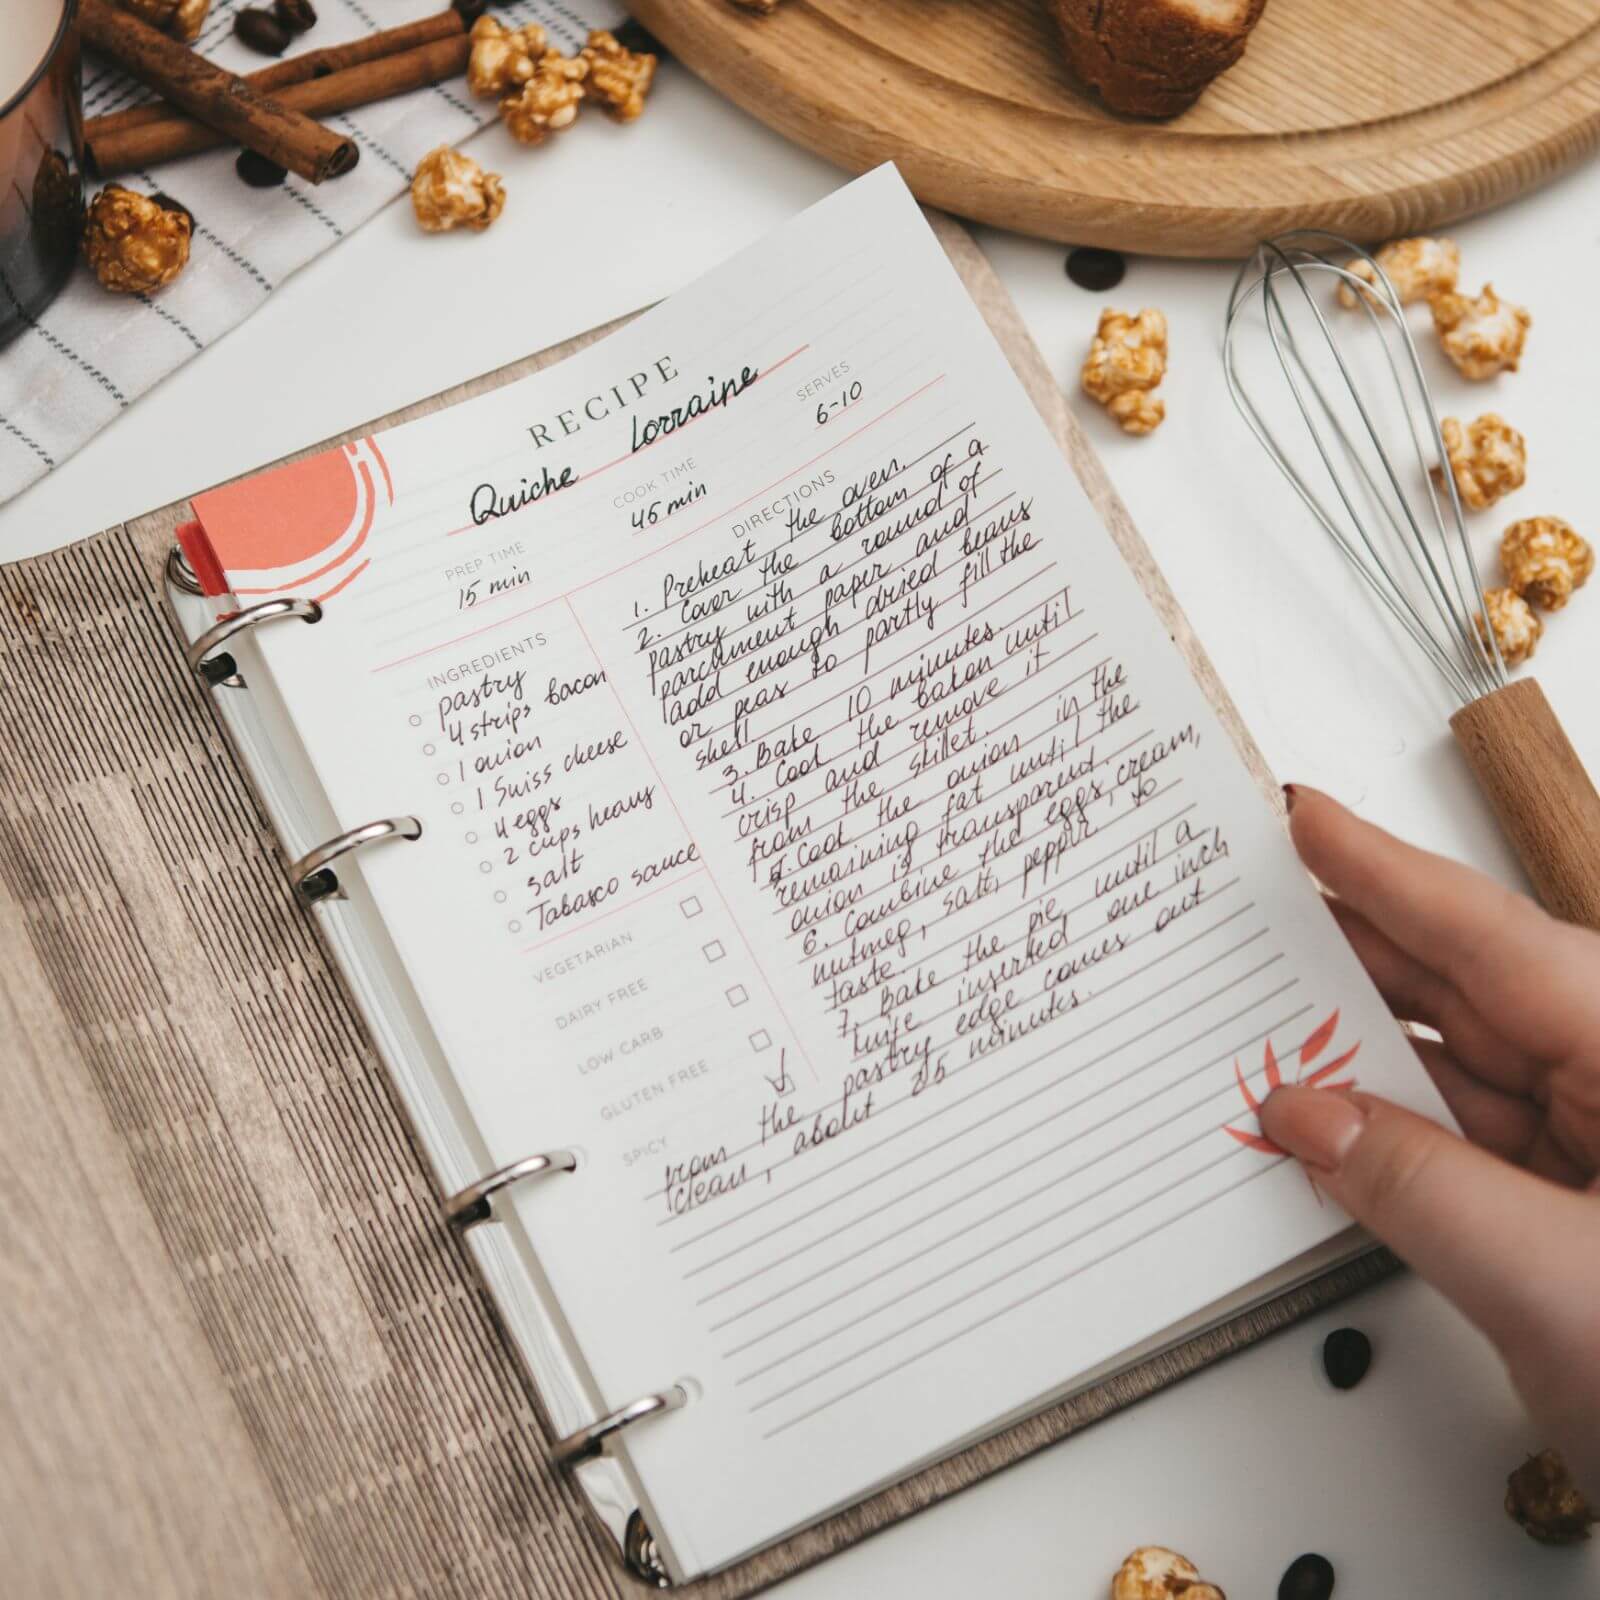 RECIPE
Quiche Lorraine
PREP TIME
15 min
COOK TIME
45 min
SERVES
6-10
INGREDIENTS
pastry
4 strips bacon
1 onion
1 Swiss cheese
4 eggs
2 cups heavy
salt
Tabasco sauce
VEGETARIAN
DAIRY FREE
LOW CARB
GLUTEN FREE
SPICY
DIRECTIONS
1. Preheat the oven.
2. Cover the bottom of a
pastry with a round of
parchment paper and
add enough dried beans
or peas to partly fill the
shell
3. Bake 10 minutes.
4. Cook the bakon until
crisp and remove it
from the skillet.
5. Cook the onion in the
remaining fat until the
onion is transparent.
6. Combine the eggs, cream,
nutmeg, salt, pepper, to
taste.
7. Bake the pie until a
knife inserted one inch
from the pastry edge comes out
clean, about 25 minutes.